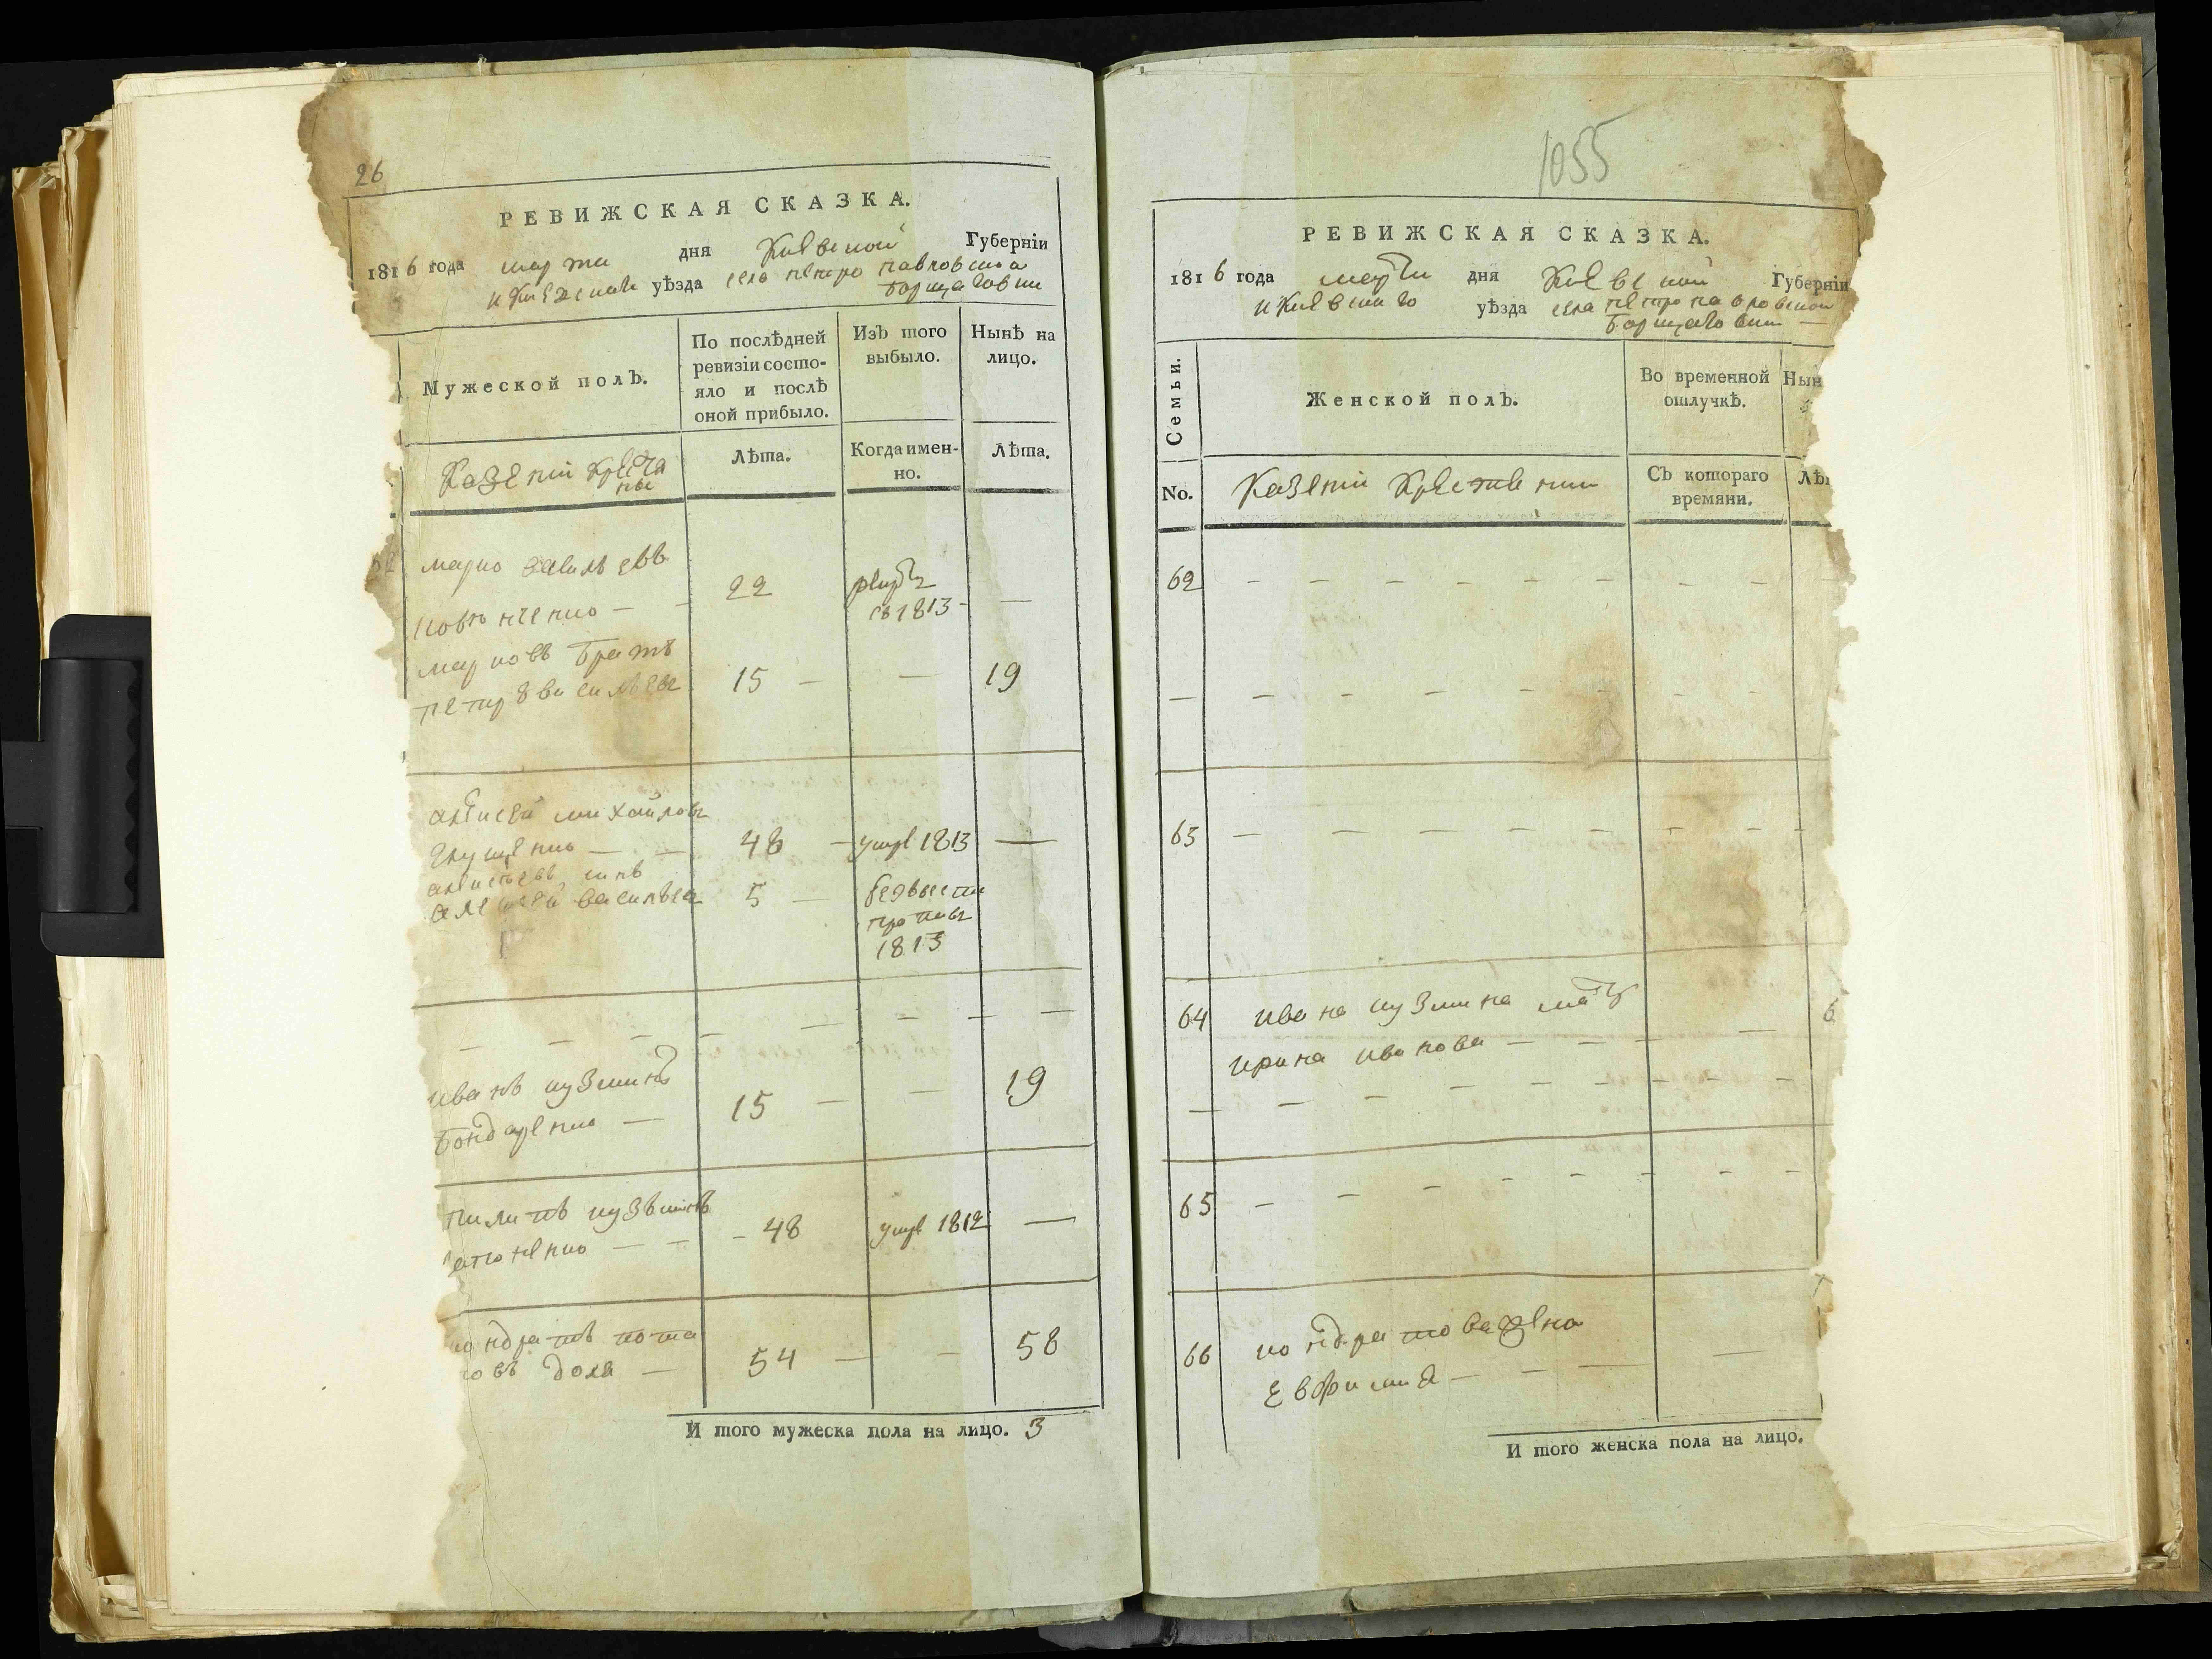 26
РЕВИЖСКАЯ СКАЗКА.
1816 года марта дня Киевской Губернїи
уѣзда села петро павловской
борщаговки
Мужеской полЪ.
По послѣдней
ревизїи состо-
яло и послѣ
оной прибыло.
ИзЪ того
выбыло.
Нынѣ на
лицо.
Казеннїи
Лѣта.
Когда имен-
но.
Лѣта.
марко
22
1813 —
марковъ братъ
петръ васильевъ
15 — — 19
михайловъ
48 — умре 1813 —
сынъ
васильевъ
5 — безвести
1813
— — — — — — — —
иванъ кузминъ
бондаренко —
15 — — 19
пилипъ кузьминъ
— 48 умре 1812 —
кондратъ пота
повъ доля —
54 — — 58
И того мужеска пола на лицо. 3
1055
РЕВИЖСКАЯ СКАЗКА.
1816 года марта дня Киевской Губернїи
и Киевскаго уѣзда села петропавловской
борщаговки —
Семьи.
Женской полЪ.
Во временной
отлучкѣ.
Нын
No.
Казеннїи
Съ котораго
времяни.
Лѣ
62 — — — — — — — — —
— — — — — — — — —
63 — — — — — — — —
64 ивана кузмина мать
ирина иванова — — — — 6
— — — — — — — —
65 — — — — — — —
66 кондратова жена
евфимия — — — —
И того женска пола на лицо.